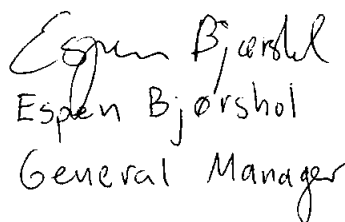 Espen Bjørshol
Espen Bjørshol
General Manager